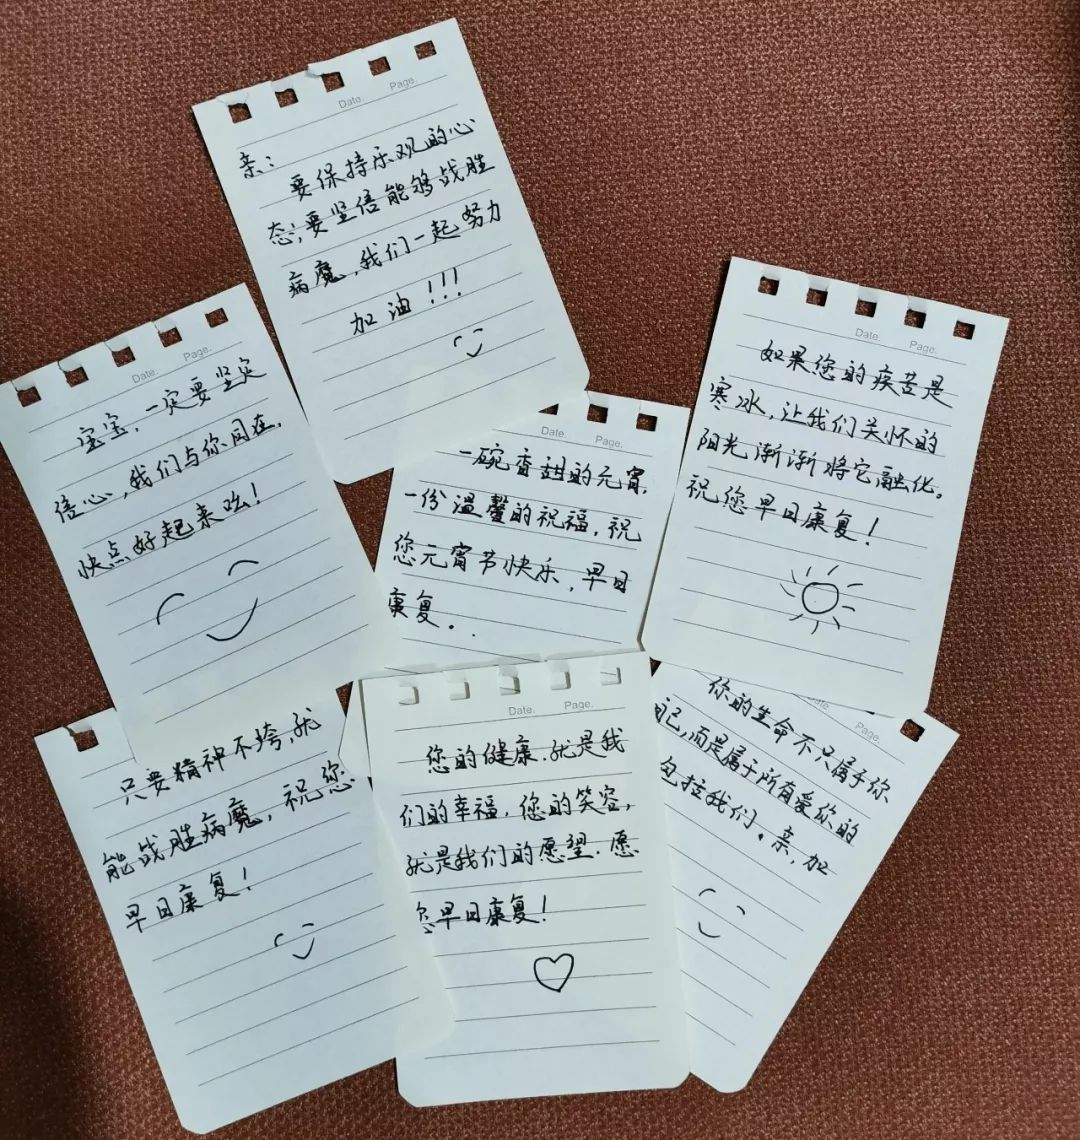 Date. Page.
亲:
要保持乐观的心
态;要坚信能够战胜
病魔,我们一起努力
加油!!!
Date. Page.
宝宝,一定要坚定
信心,我们与你同在,
快点好起来哈!
Date. Page.
一碗香甜的元宵,
一份温馨的祝福,祝
您元宵节快乐,早日
康复。
Date. Page.
如果您的疾苦是
寒冰,让我们关怀的
阳光渐渐将它融化。
祝您早日康复!
只要精神不垮,就
能战胜病魔,祝您
早日康复!
Date. Page.
您的健康,就是我
们的幸福,您的笑容,
就是我们的愿望.愿
您早日康复!
Date. Page.
你的生命不只属于你
自己,而是属于所有爱你的
包括我们。亲,加